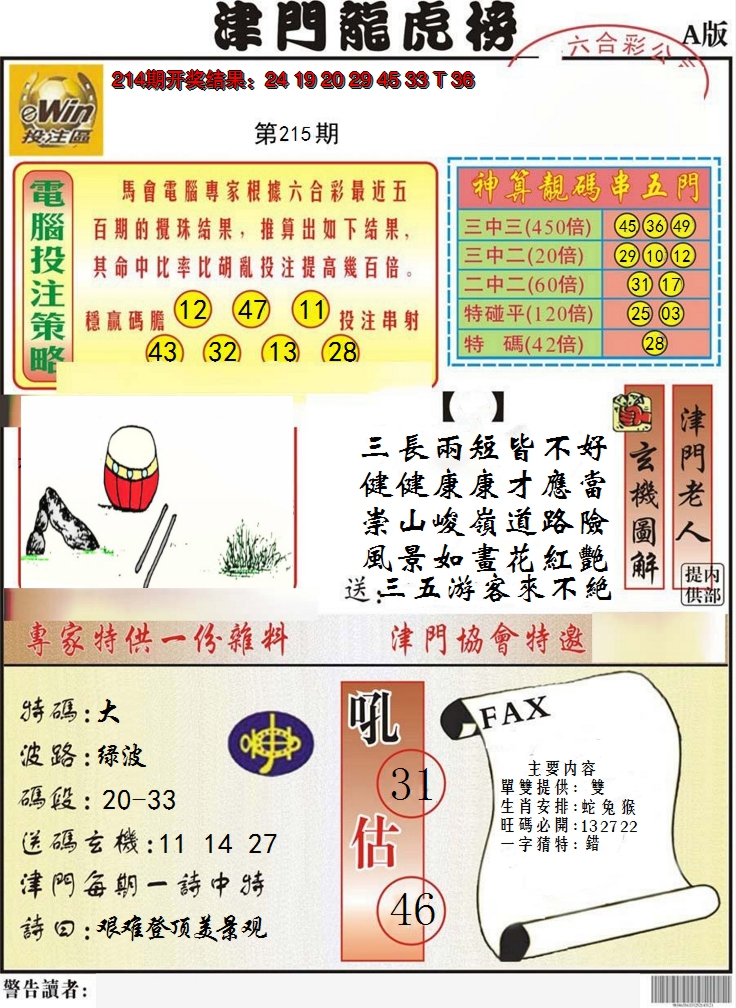 津門龍虎榜
六合彩公
A版
eWin
投注區
214期开奖结果：24 19 20 29 45 33 T 36
第215期
電腦投注策略
馬會電腦專家根據六合彩最近五
百期的攪珠结果，推算出如下结果，
其命中比率比胡亂投注提高幾百倍。
穩贏碼膽 12 47 11 投注串射
43 32 13 28
神算靚碼串五門
三中三(450倍) 45 36 49
三中二(20倍) 29 10 12
二中二(60倍) 31 17
特碰平(120倍) 25 03
特 碼(42倍) 28
【 】
三長兩短皆不好
健健康康才應當
崇山峻嶺道路險
風景如畫花紅艷
送：三五游客來不絕
玄機圖解
津門老人
内部提供
專家特供一份雜料
津門協會特邀
特碼：大
波路：绿波
碼段：20-33
送碼玄機：11 14 27
津門每期一詩中特
詩曰：艰难登顶美景观
吼
31
估
46
FAX
主要内容
單雙提供：雙
生肖安排：蛇兔猴
旺碼必開：132722
一字猜特：錯
警告讀者：